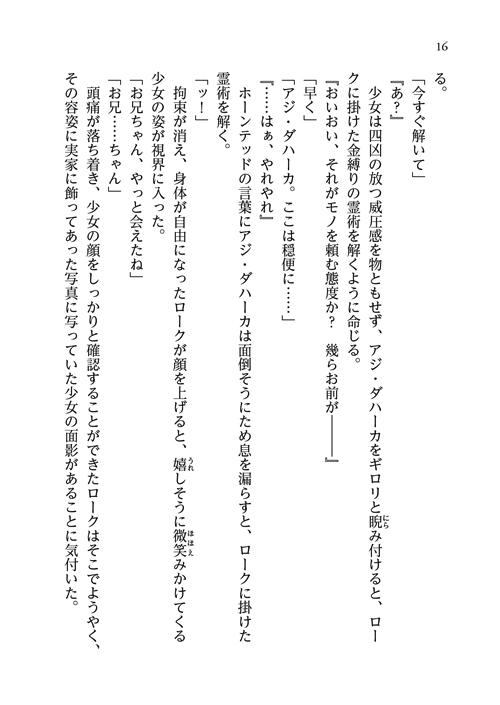 16
る。
「今すぐ解いて」
『あ？』
少女は四凶の放つ威圧感を物ともせず、アジ・ダハーカをギロリと睨み付けると、ロー
クに掛けた金縛りの霊術を解くように命じる。
『おいおい、それがモノを頼む態度か？　幾らお前が――』
「早く」
「アジ・ダハーカ。ここは穏便に……」
『……はぁ、やれやれ』
ホーンテッドの言葉にアジ・ダハーカは面倒そうにため息を漏らすと、ロークに掛けた
霊術を解く。
「ッ！」
拘束が消え、身体が自由になったロークが顔を上げると、嬉しそうに微笑みかけてくる
少女の姿が視界に入った。
「お兄ちゃん、やっと会えたね」
「お兄……ちゃん」
頭痛が落ち着き、少女の顔をしっかりと確認することができたロークはそこでようやく、
その容姿に実家に飾ってあった写真に写っていた少女の面影があることに気付いた。